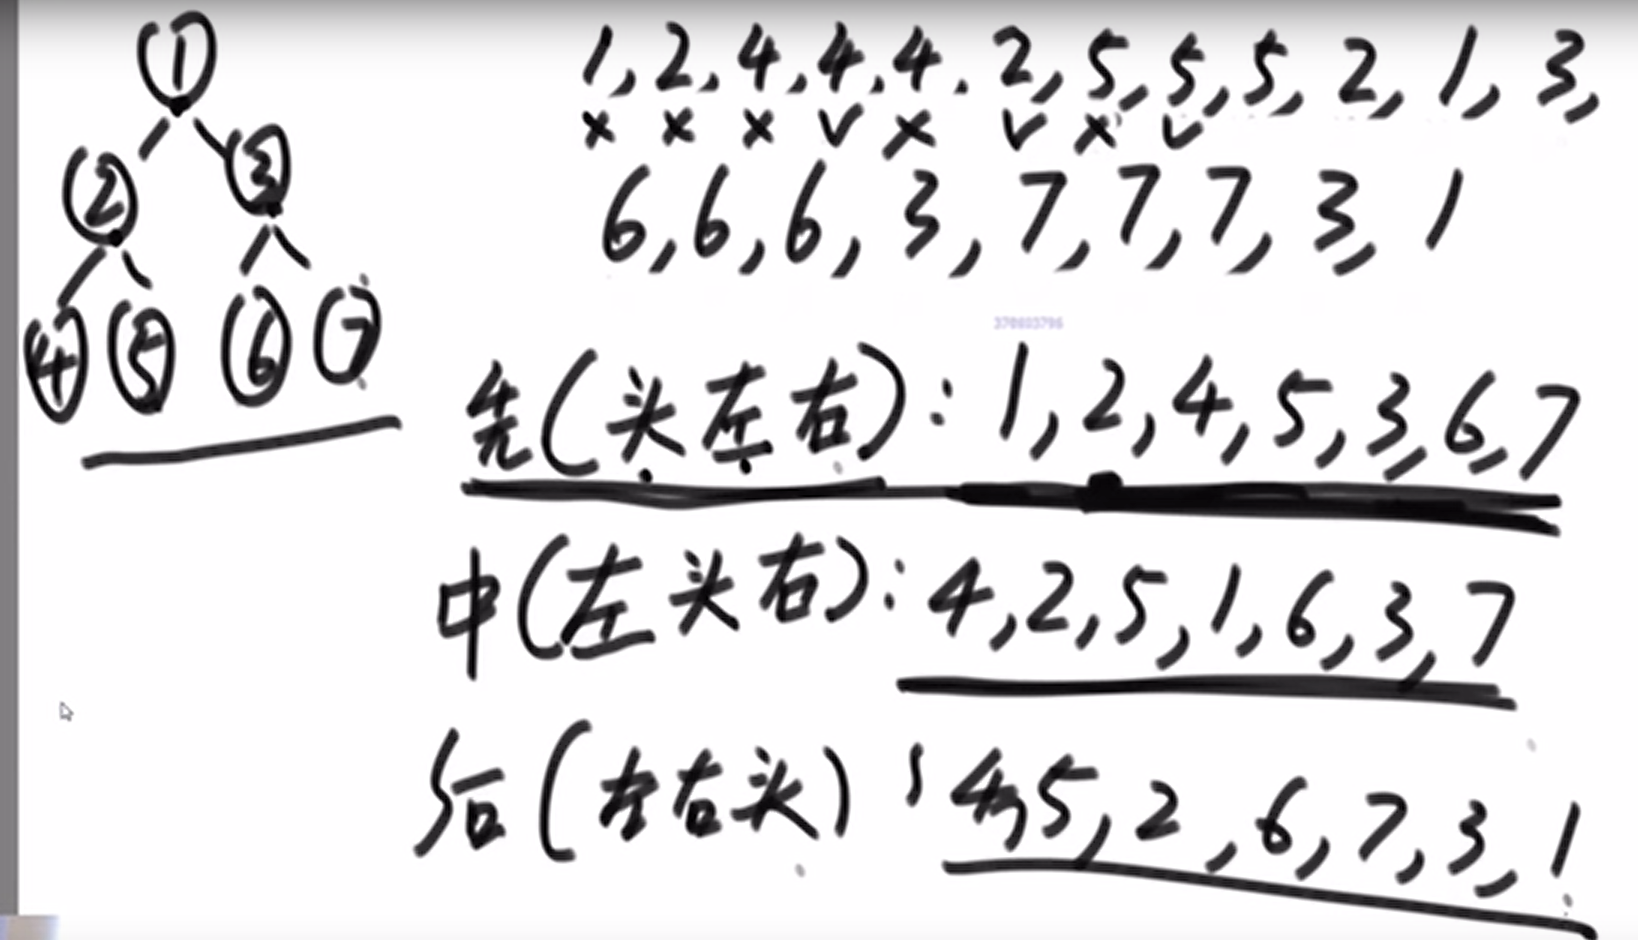 1
2 3
4 5 6 7
1, 2, 4, 4, 4, 2, 5, 5, 5, 2, 1, 3,
× × × ✓ × ✓ × ✓
6, 6, 6, 3, 7, 7, 7, 3, 1
370803796
先(头左右): 1, 2, 4, 5, 3, 6, 7
中(左头右): 4, 2, 5, 1, 6, 3, 7
后(左右头): 4, 5, 2, 6, 7, 3, 1